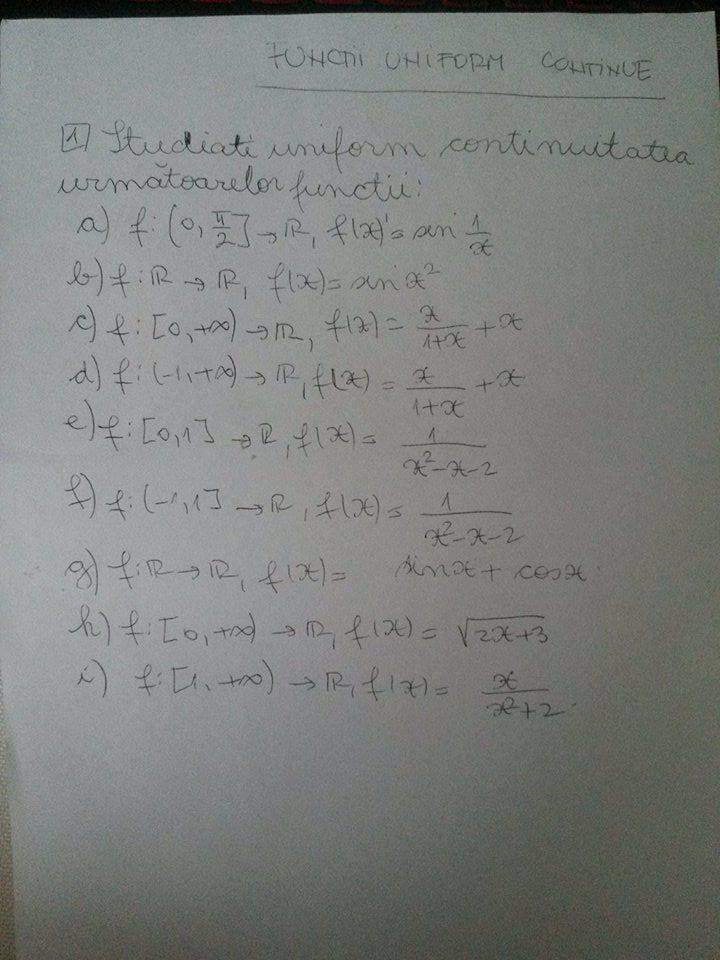 FUNCTII UNIFORM CONTINUE
1 Studiati uniform continuitatea
următoarelor functii:
a) f: (0, π/2] → ℝ, f(x) = sin 1/x
b) f: ℝ → ℝ, f(x) = sin x²
c) f: [0, +∞) → ℝ, f(x) = x/(1+x) + x
d) f: (-1, +∞) → ℝ, f(x) = x/(1+x) + x
e) f: [0, 1] → ℝ, f(x) = 1/(x²-x-2)
f) f: (-1, 1] → ℝ, f(x) = 1/(x²-x-2)
g) f: ℝ → ℝ, f(x) = sin x + cos x.
h) f: [0, +∞) → ℝ, f(x) = √(2x+3)
i) f: [1, +∞) → ℝ, f(x) = x/(x²+2).